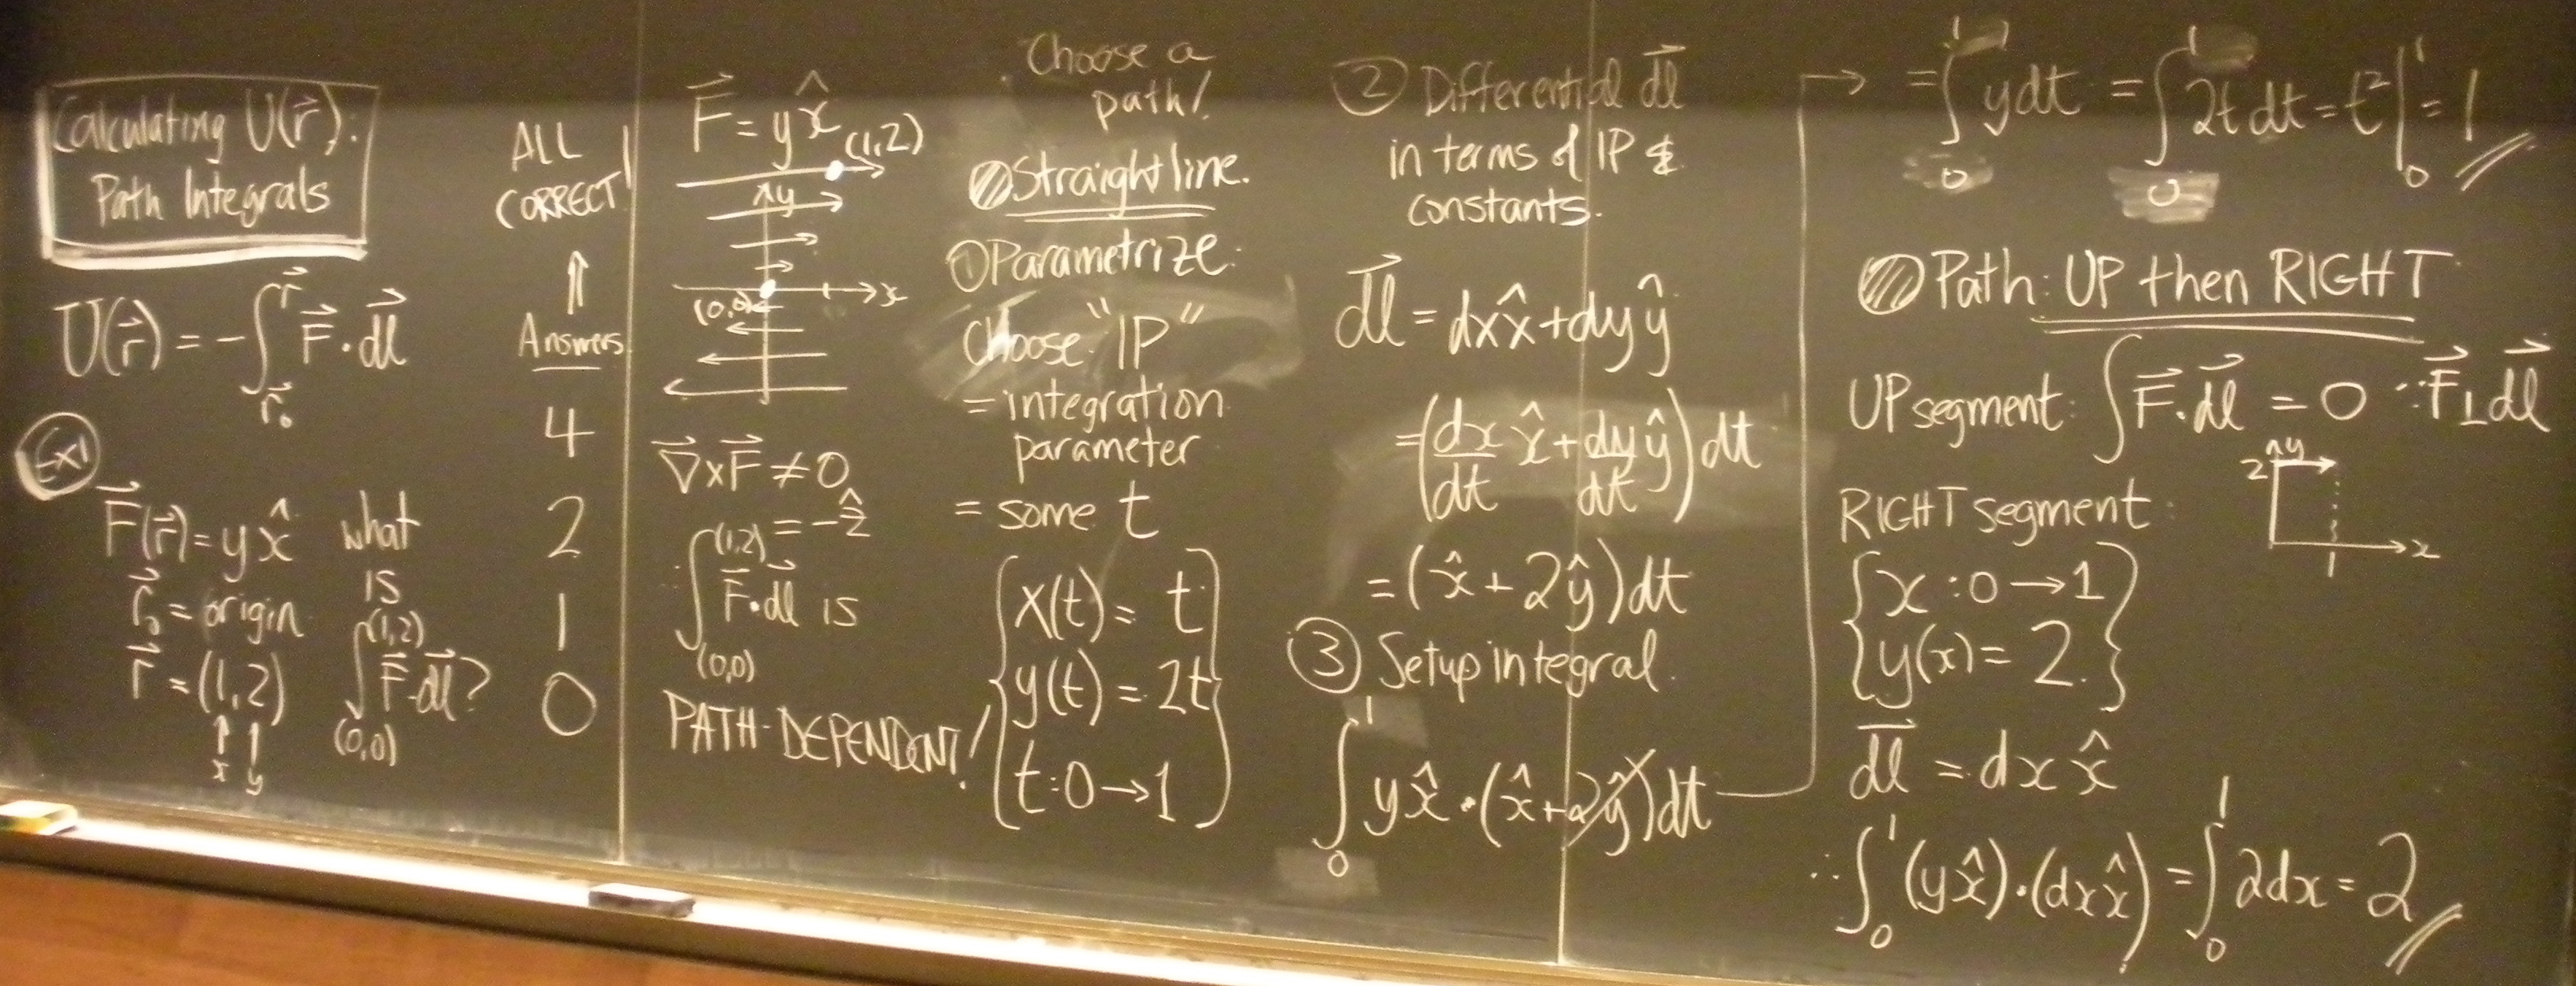 Calculating U(r⃗):
Path Integrals
U(r⃗) = -∫_{r⃗₀}^{r⃗} F⃗·dl⃗
Ex1
F⃗(r⃗) = y x̂
r⃗₀ = origin
r⃗ = (1,2)
↑ ↑
x y
what
is
∫_{(0,0)}^{(1,2)} F⃗·dl⃗?
ALL
CORRECT!
⇑
Answers
4
2
1
0
F⃗ = y x̂
(1,2)
y
x
(0,0)
∇⃗×F⃗ ≠ 0
= -ẑ
∴ ∫_{(0,0)}^{(1,2)} F⃗·dl⃗ is
PATH-DEPENDENT!
Choose a
path!
Straight line.
① Parametrize:
Choose "IP"
= integration
parameter
= some t
{x(t) = t
y(t) = 2t
t: 0→1}
② Differential dl⃗
in terms of IP &
constants.
dl⃗ = dx x̂ + dy ŷ
= (dx/dt x̂ + dy/dt ŷ) dt
= (x̂ + 2ŷ) dt
③ Setup integral.
∫₀¹ y x̂·(x̂ + 2ŷ) dt
→ = ∫₀¹ y dt = ∫₀¹ 2t dt = t²|₀¹ = 1
Path: UP then RIGHT
UP segment: ∫ F⃗·dl⃗ = 0 ∵ F⃗ ⊥ dl⃗
y
2
x
1
RIGHT segment:
{x: 0→1
y(x) = 2.}
dl⃗ = dx x̂
∴ ∫₀¹ (y x̂)·(dx x̂) = ∫₀¹ 2dx = 2